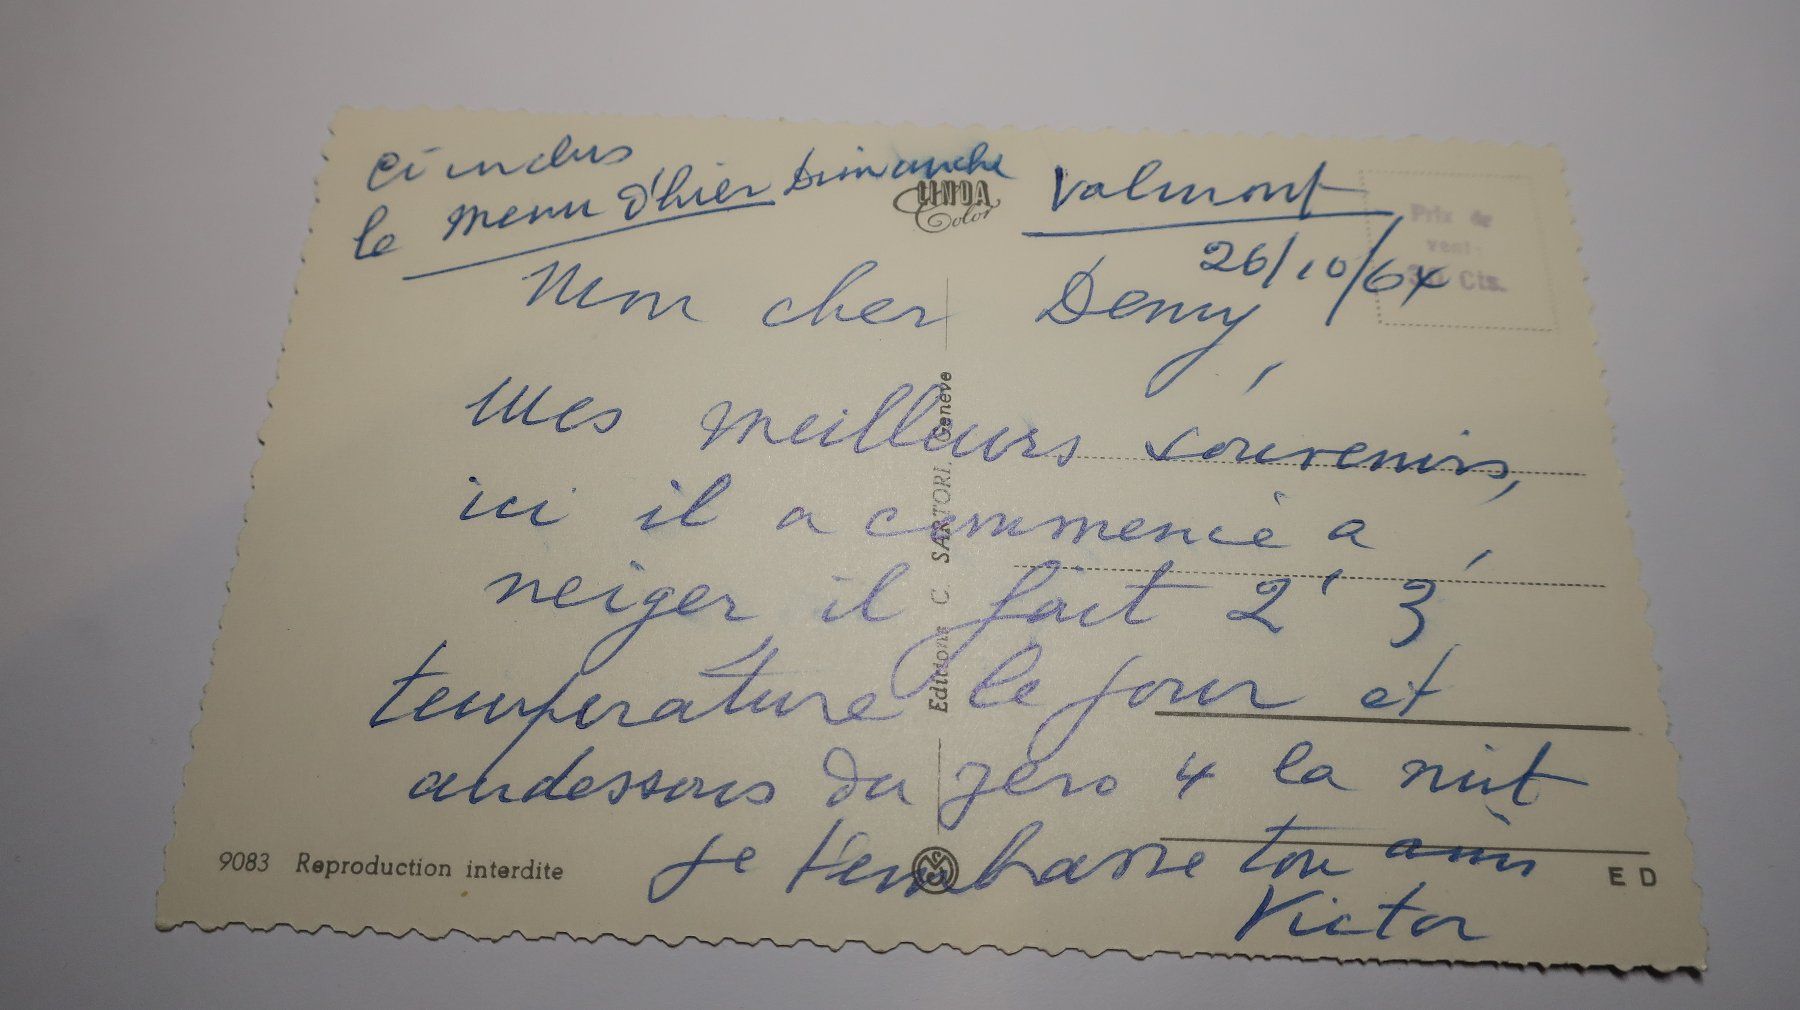 ci indus
le menu d'hier Dimanche
Valmont
26/10/64
Mon cher Demy,
Mes meilleurs souvenirs,
ici il a commencé a
neiger il fait 2' 3
température le jour et
audessous du zéro 4 la nuit
je t'embrasse ton ami
Victor
LINDA
Color
Prix de
vent-
Cts.
Editions C. SARTORI, Genève
9083 Reproduction interdite
E D